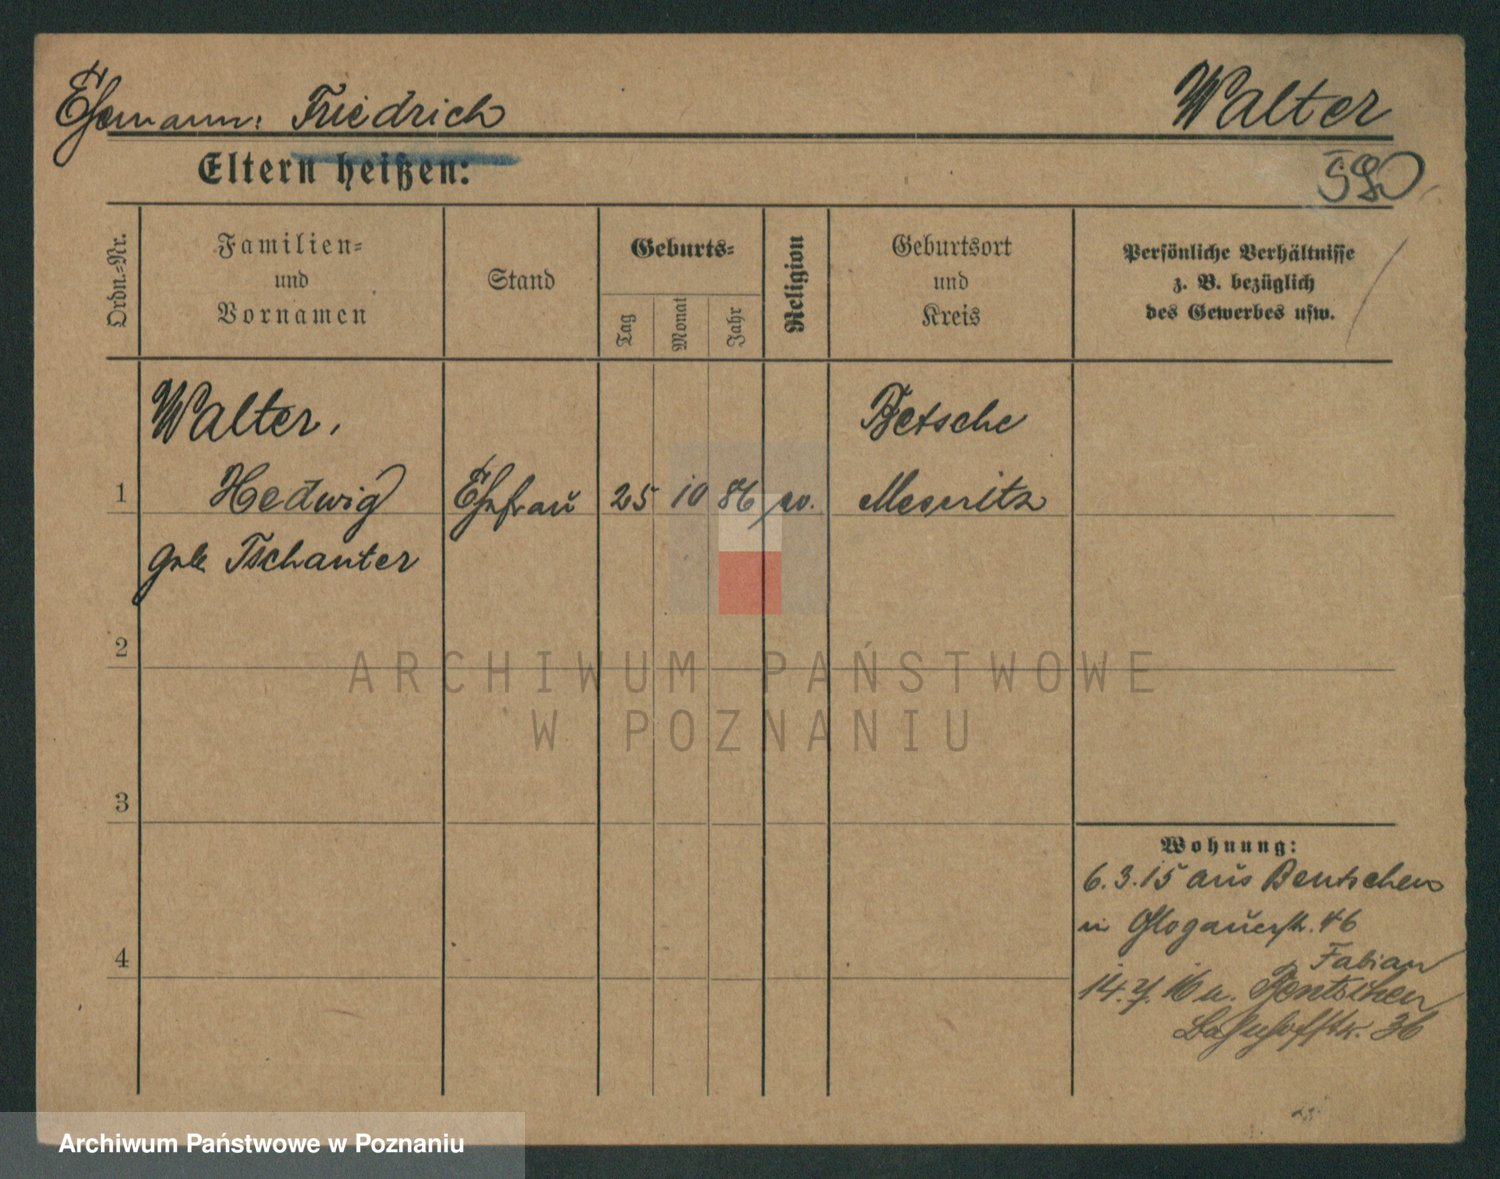 Ehemann: Friedrich
Walter
Eltern heißen:
590
Ordn.-Nr.
Familien-
und
Vornamen
Stand
Geburts-
Tag
Monat
Jahr
Religion
Geburtsort
und
Kreis
Persönliche Verhältnisse
z. B. bezüglich
des Gewerbes usw.
Walter,
Betsche
1 Hedwig Ehefrau 25 10 86 ev. Meseritz
geb. Tschanter
2
ARCHIWUM PAŃSTWOWE
W POZNANIU
3
Wohnung:
6.3.15 aus Bentschen
in Glogauerstr. 46
4
Fabian
14.7.16 n. Bentschen
Bahnhofstr. 36
Archiwum Państwowe w Poznaniu